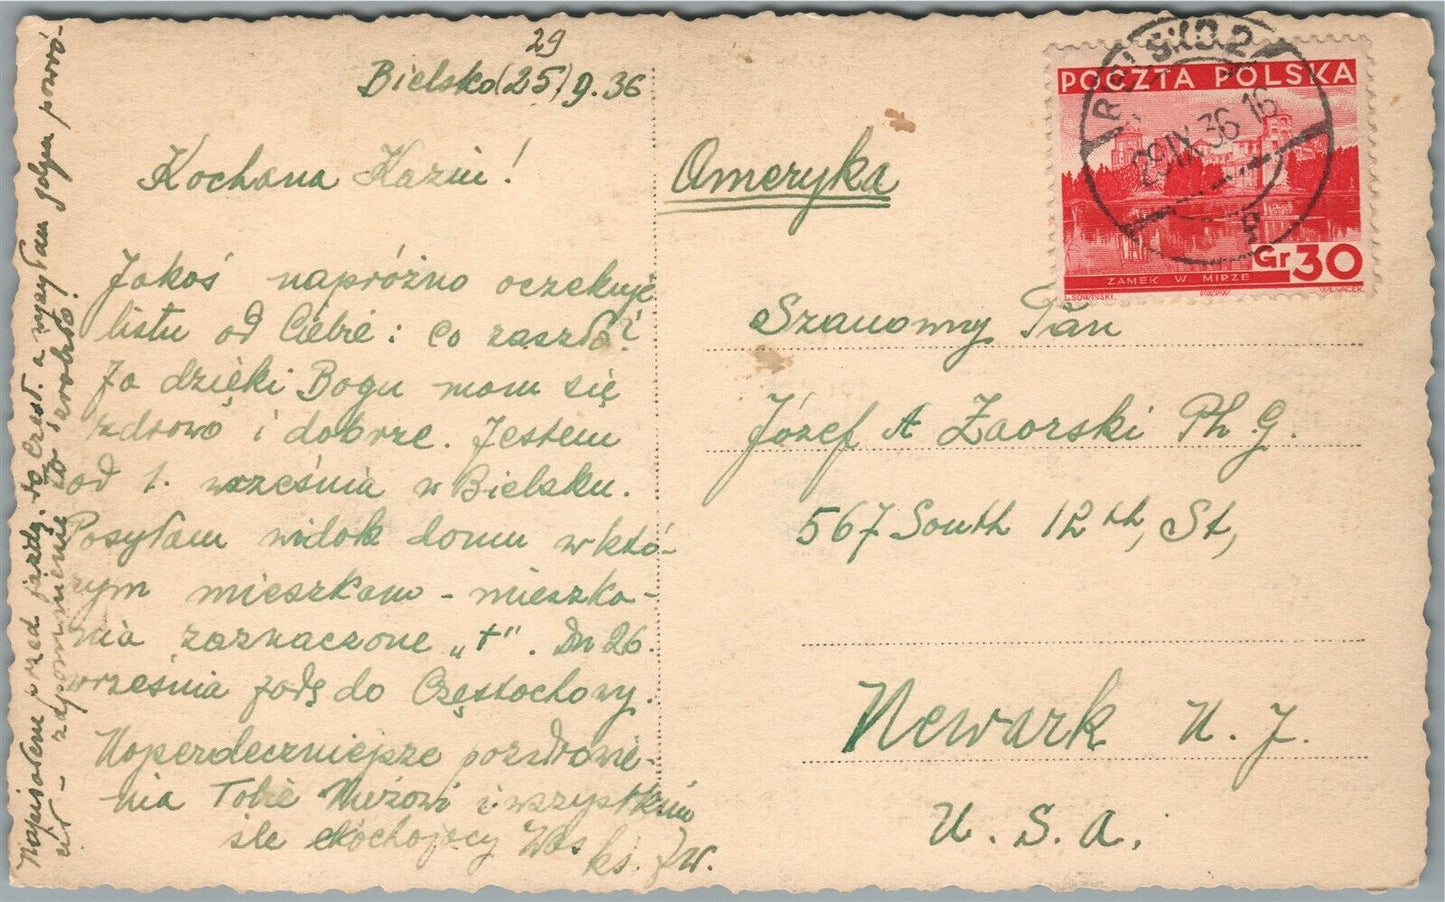 29
Bielsko (25) 9. 36
Kochana Kaziu!
Jakoś napróżno oczekuję
listu od Ciebie: co zaszło?
Ja dzięki Bogu mam się
zdrowo i dobrze. Jestem
od 1. września w Bielsku.
Posyłam widok domu w któ-
rym mieszkam - mieszka-
nia zaznaczone „+". Dn 26.
września jadę do Częstochowy.
Najserdeczniejsze pozdrowie-
nia Tobie Mężowi i wszystkim
śle kochający Was
ks. J W.
Napisałem przed jazdą do Częst. a wysyłam powró-
cił - zapomnienie to zrobiło!
Ameryka
POCZTA POLSKA
29 IX 36 16
ZAMEK W MIRZE
Gr 30
Szanowny Pan
Józef A Zaorski Ph. G.
567 South 12th, St,
Newark N. J.
U. S. A.